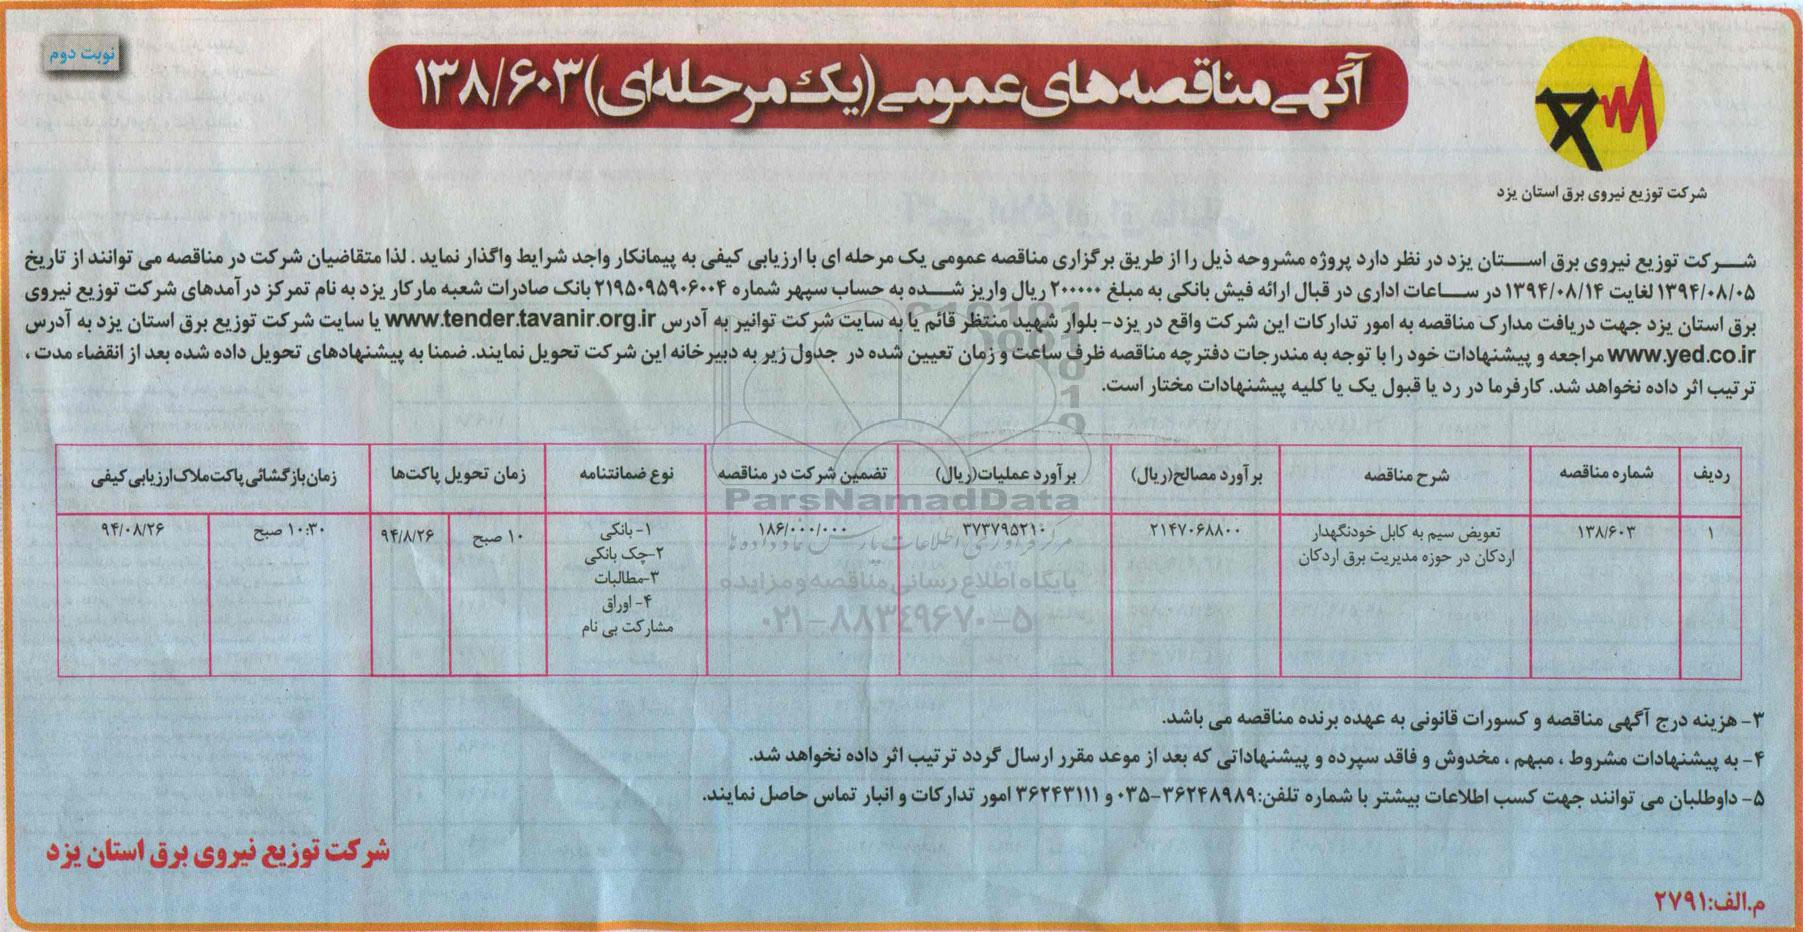 نوبت دوم
آگهی مناقصه های عمومی (یک مرحله ای) ۱۳۸/۶۰۳
شرکت توزیع نیروی برق استان یزد
شــرکت توزیع نیروی برق اســتان یزد در نظر دارد پروژه مشروحه ذیل را از طریق برگزاری مناقصه عمومی یک مرحله ای با ارزیابی کیفی به پیمانکار واجد شرایط واگذار نماید . لذا متقاضیان شرکت در مناقصه می توانند از تاریخ
۱۳۹۴/۰۸/۰۵ لغایت ۱۳۹۴/۰۸/۱۴ در ســاعات اداری در قبال ارائه فیش بانکی به مبلغ ۲۰۰۰۰۰ ریال واریز شــده به حساب سپهر شماره ۲۱۹۵۰۹۵۹۰۶۰۰۴ بانک صادرات شعبه مارکار یزد به نام تمرکز درآمدهای شرکت توزیع نیروی
برق استان یزد جهت دریافت مدارک مناقصه به امور تدارکات این شرکت واقع در یزد- بلوار شهید منتظر قائم یا به سایت شرکت توانیر به آدرس www.tender.tavanir.org.ir یا سایت شرکت توزیع برق استان یزد به آدرس
www.yed.co.ir مراجعه و پیشنهادات خود را با توجه به مندرجات دفترچه مناقصه ظرف ساعت و زمان تعیین شده در جدول زیر به دبیرخانه این شرکت تحویل نمایند. ضمنا به پیشنهادهای تحویل داده شده بعد از انقضاء مدت ،
ترتیب اثر داده نخواهد شد. کارفرما در رد یا قبول یک یا کلیه پیشنهادات مختار است.
ردیف شماره مناقصه شرح مناقصه برآورد مصالح(ریال) برآورد عملیات(ریال) تضمین شرکت در مناقصه نوع ضمانتنامه زمان تحویل پاکت‌ها زمان بازگشائی پاکت ملاک ارزیابی کیفی
۱ ۱۳۸/۶۰۳ تعویض سیم به کابل خودنگهدار ۲۱۴۷۰۶۸۸۰۰ ۳۷۳۷۹۵۲۱۰ ۱۸۶/۰۰۰/۰۰۰ ۱- بانکی ۱۰ صبح ۹۴/۸/۲۶ ۱۰:۳۰ صبح ۹۴/۰۸/۲۶
اردکان در حوزه مدیریت برق اردکان ۲-چک بانکی
۳-مطالبات
۴- اوراق
مشارکت بی نام
ParsNamadData
مرکز فرآوری اطلاعات پارس نماد داده ها
پایگاه اطلاع رسانی مناقصه و مزایده
۰۲۱-۸۸۳۴۹۶۷۰-۵
۳- هزینه درج آگهی مناقصه و کسورات قانونی به عهده برنده مناقصه می باشد.
۴- به پیشنهادات مشروط ، مبهم ، مخدوش و فاقد سپرده و پیشنهاداتی که بعد از موعد مقرر ارسال گردد ترتیب اثر داده نخواهد شد.
۵- داوطلبان می توانند جهت کسب اطلاعات بیشتر با شماره تلفن:۳۶۲۴۸۹۸۹-۰۳۵ و ۳۶۲۴۳۱۱۱ امور تدارکات و انبار تماس حاصل نمایند.
شرکت توزیع نیروی برق استان یزد
م.الف:۲۷۹۱